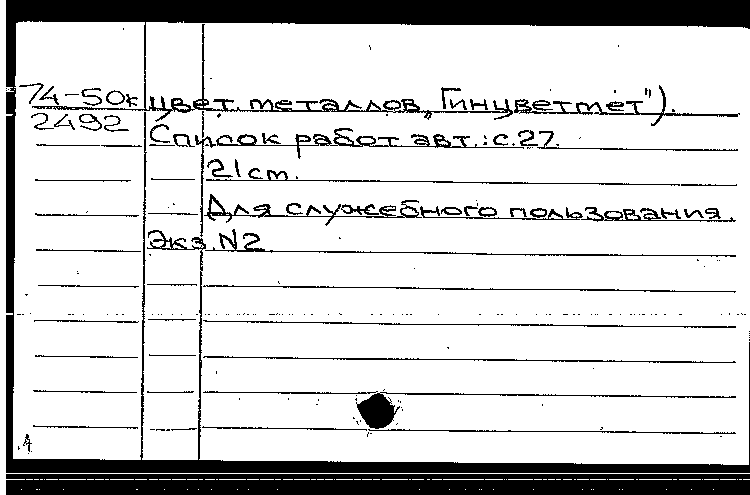 74-50к цвет. металлов „Гинцветмет").
2492 Список работ авт.: с.27.
21 cm.
Для служебного пользования.
Экз. N2